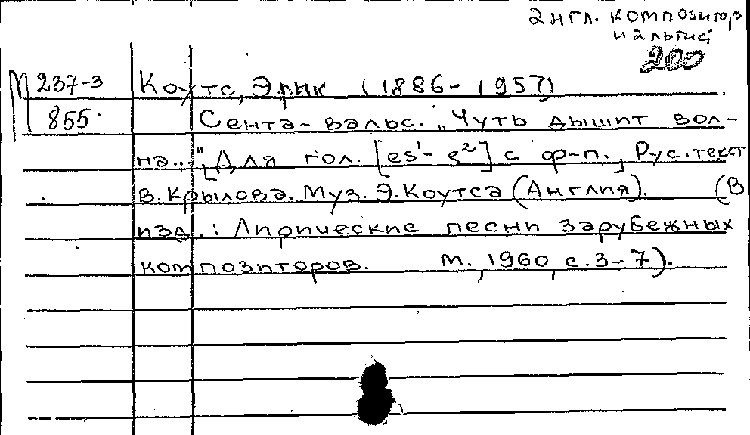 англ. композитор
и альтист
200
М 237-3 Коутс, Эрик (1886-1957)
855. Сента-вальс. „Чуть дышит вол-
на..." [Для гол. [es¹- g²] с ф-п., Рус. текст
В. Крылова. Муз. Э. Коутса (Англия). (В
изд.: Лирические песни зарубежных
композиторов. М., 1960, с. 3-7).